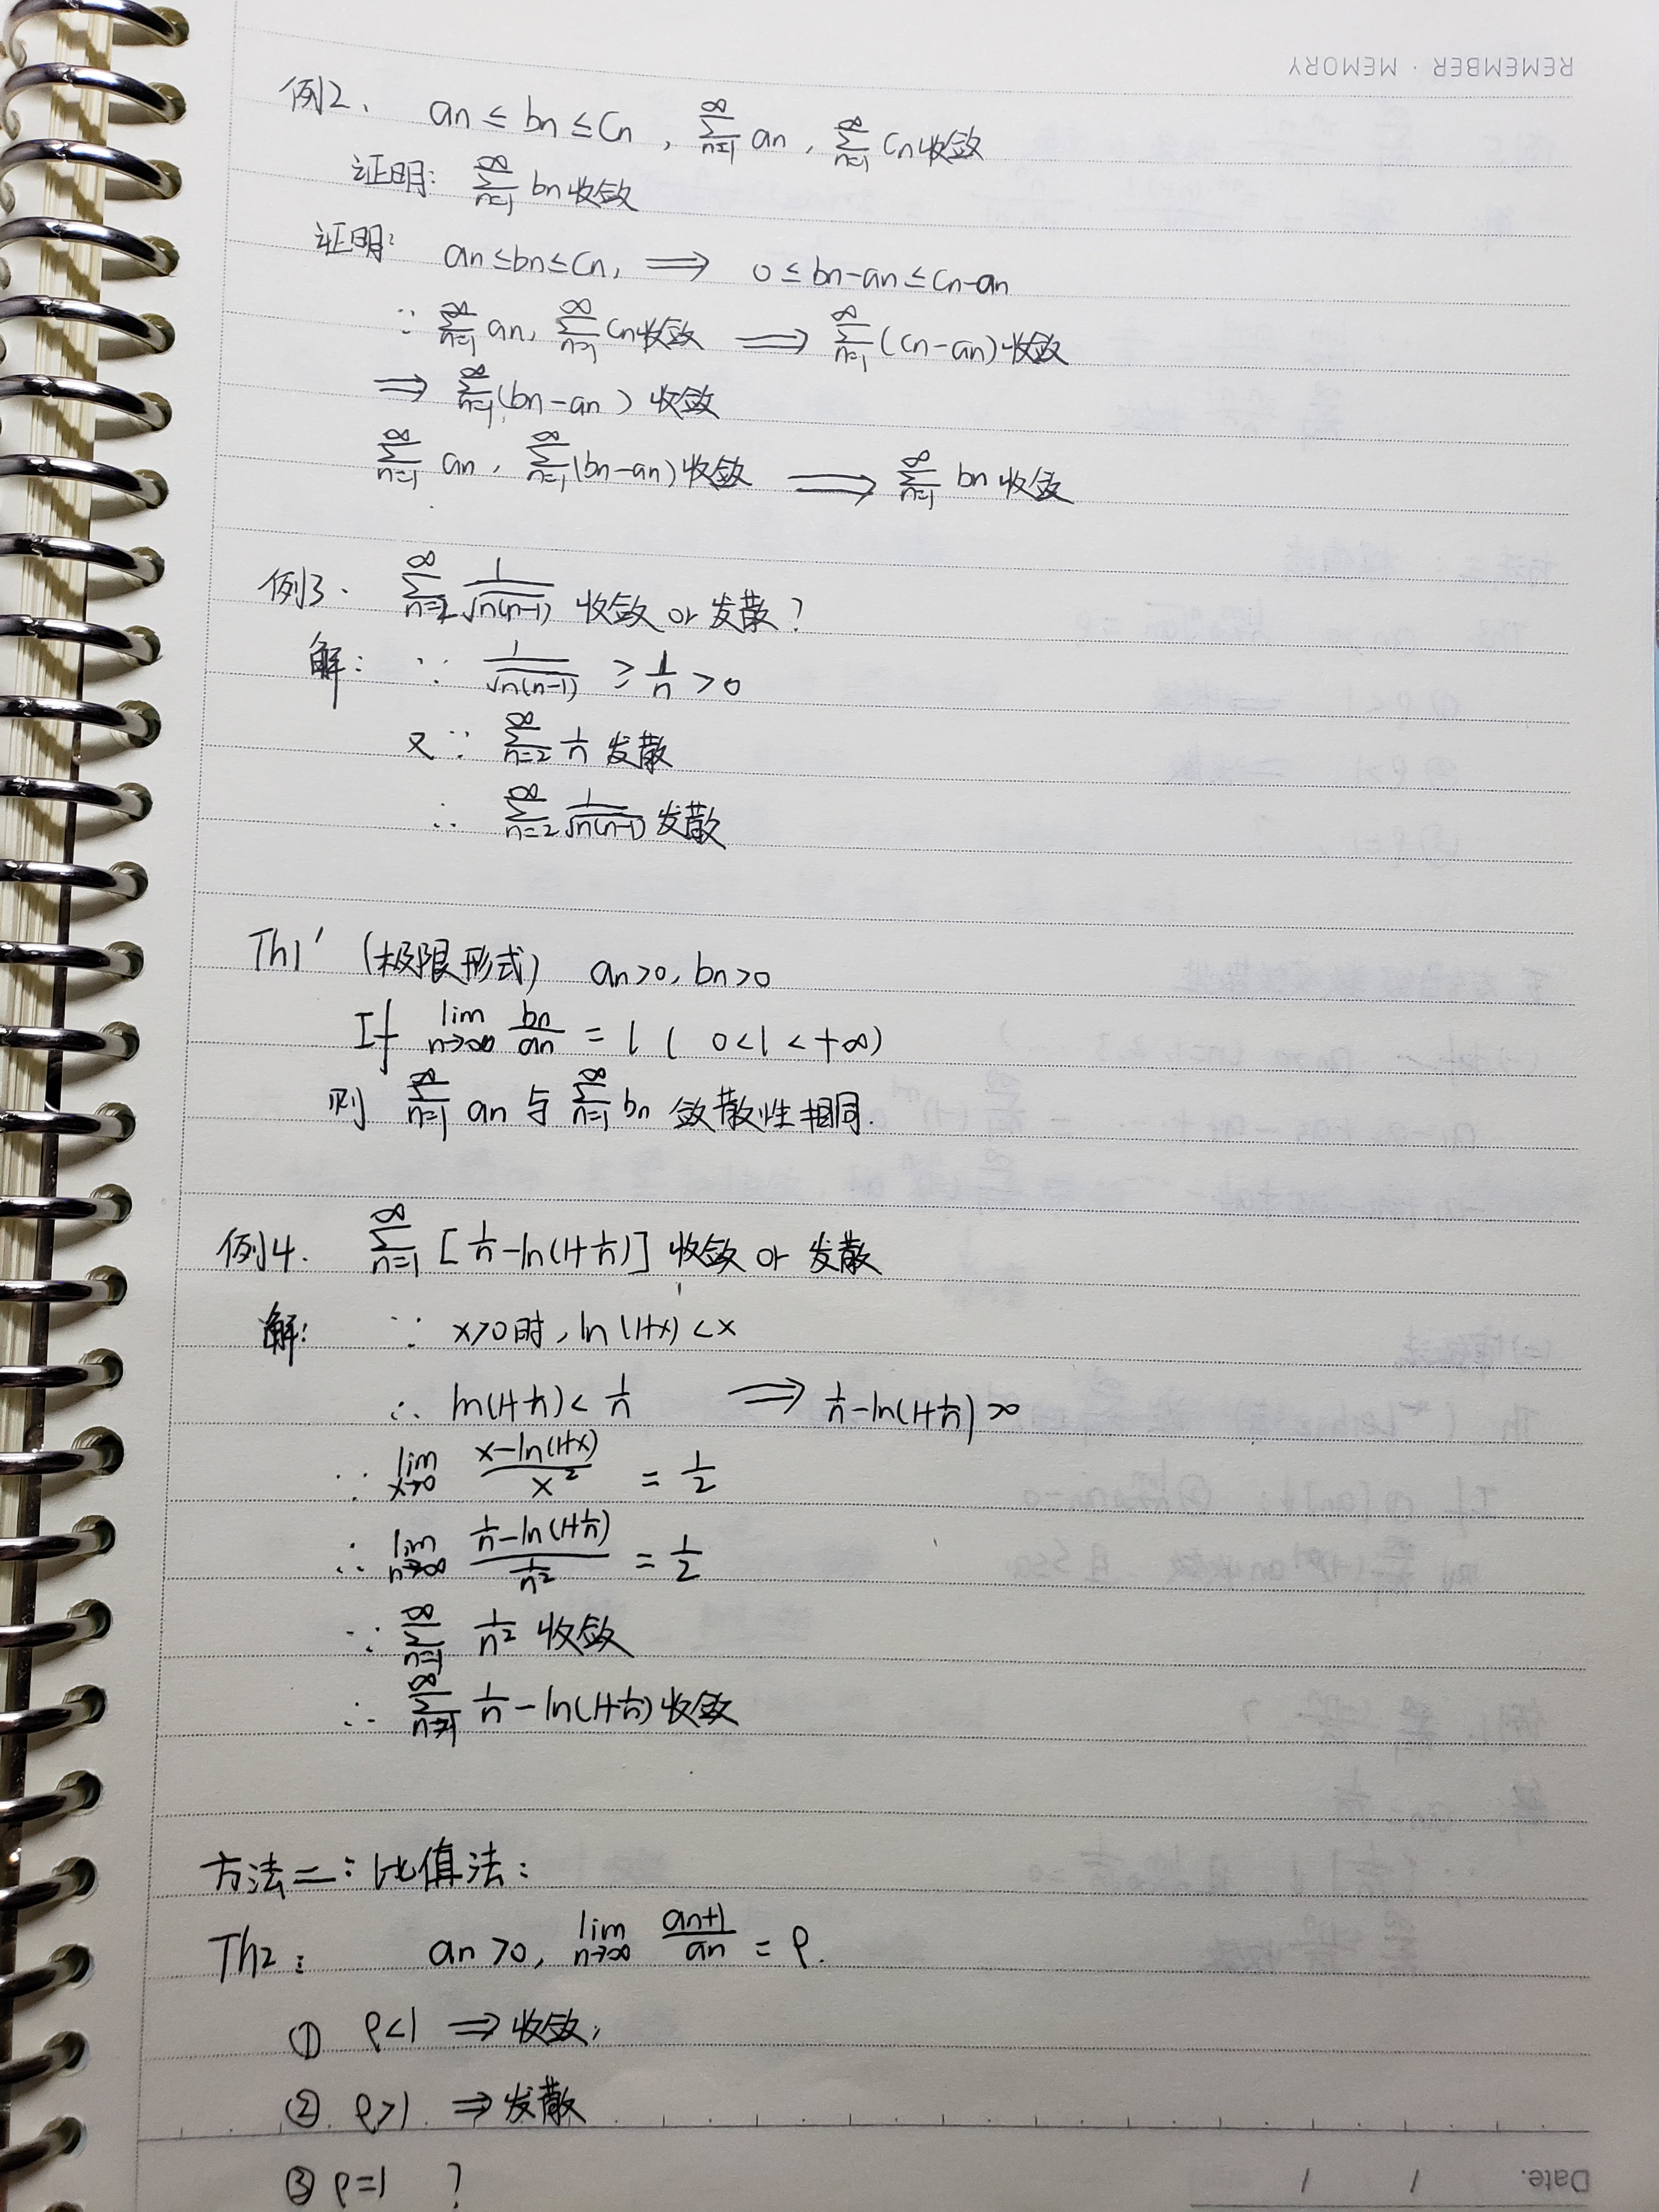 REMEMBER · MEMORY
例2、 an ≤ bn ≤ Cn , ∑_{n=1}^{∞} an , ∑_{n=1}^{∞} Cn 收敛
证明: ∑_{n=1}^{∞} bn 收敛
证明: an ≤ bn ≤ Cn, ⟹ 0 ≤ bn-an ≤ Cn-an
∵ ∑_{n=1}^{∞} an, ∑_{n=1}^{∞} Cn 收敛 ⟹ ∑_{n=1}^{∞} (Cn-an) 收敛
⟹ ∑_{n=1}^{∞} (bn-an) 收敛
∑_{n=1}^{∞} an, ∑_{n=1}^{∞} (bn-an) 收敛 ⟹ ∑_{n=1}^{∞} bn 收敛
例3. ∑_{n=2}^{∞} 1/√(n(n-1)) 收敛 or 发散?
解: ∵ 1/√(n(n-1)) ≥ 1/n > 0
又∵ ∑_{n=2}^{∞} 1/n 发散
∴ ∑_{n=2}^{∞} 1/√(n(n-1)) 发散
Th1' (极限形式) an>0, bn>0
If lim_{n→∞} bn/an = l ( 0<l<+∞)
则 ∑_{n=1}^{∞} an 与 ∑_{n=1}^{∞} bn 敛散性相同.
例4. ∑_{n=1}^{∞} [1/n-ln(1+1/n)] 收敛 or 发散
解: ∵ x>0时, ln(1+x) < x
∴ ln(1+1/n) < 1/n ⟹ 1/n-ln(1+1/n) >0
∵ lim_{x→0} (x-ln(1+x))/x² = 1/2
∴ lim_{n→∞} (1/n-ln(1+1/n))/(1/n²) = 1/2
∵ ∑_{n=1}^{∞} 1/n² 收敛
∴ ∑_{n=1}^{∞} 1/n-ln(1+1/n) 收敛
方法二: 比值法:
Th2: an>0, lim_{n→∞} an+1/an = ρ.
① ρ<1 ⟹ 收敛;
② ρ>1. ⟹ 发散
③ ρ=1 ?
Date. / /